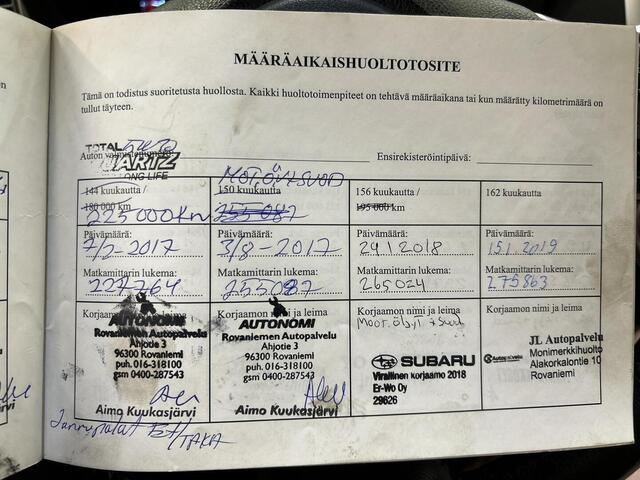 MÄÄRÄAIKAISHUOLTOTOSITE
Tämä on todistus suoritetusta huollosta. Kaikki huoltotoimenpiteet on tehtävä määräaikana tai kun määrätty kilometrimäärä on
tullut täyteen.
TOTAL
QUARTZ
LONG LIFE
Auton
Ensirekisteröintipäivä:
MOT.ÖLJY SUOD
144 kuukautta /
180 000 km
225 000 Km
150 kuukautta
255 087
156 kuukautta
195 000 km
162 kuukautta
Päivämäärä:
7/2-2017
Päivämäärä:
3/8-2017
Päivämäärä:
29 1 2018
Päivämäärä:
15.1.2019
Matkamittarin lukema:
227764
Matkamittarin lukema:
255087
Matkamittarin lukema:
265024
Matkamittarin lukema:
275863
Korjaamon nimi ja leima
AUTONOMI
Rovaniemen Autopalvelu
Ahjotie 3
96300 Rovaniemi
puh. 016-318100
gsm 0400-287543
Aimo Kuukasjärvi
Korjaamon nimi ja leima
AUTONOMI
Rovaniemen Autopalvelu
Ahjotie 3
96300 Rovaniemi
puh. 016-318100
gsm 0400-287543
Aimo Kuukasjärvi
Korjaamon nimi ja leima
SUBARU
Virallinen korjaamo 2018
Er-Wo Oy
29626
Korjaamon nimi ja leima
JL Autopalvelu
Autopalvelu
Monimerkkihuolto
Alakorkalontie 10
Rovaniemi
Jarrupalat ET/TAKA